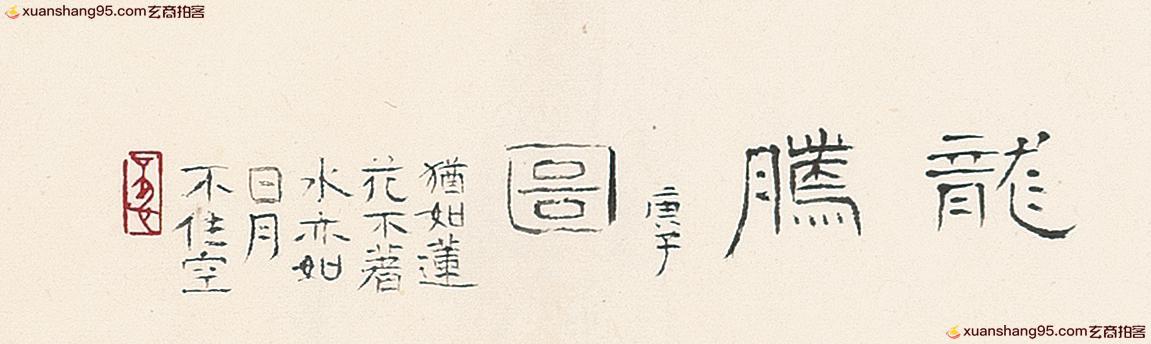 xuanshang95.com玄商拍客
龍騰圖
庚子
猶如蓮
花不著
水亦如
日月
不住空
xuanshang95.com玄商拍客